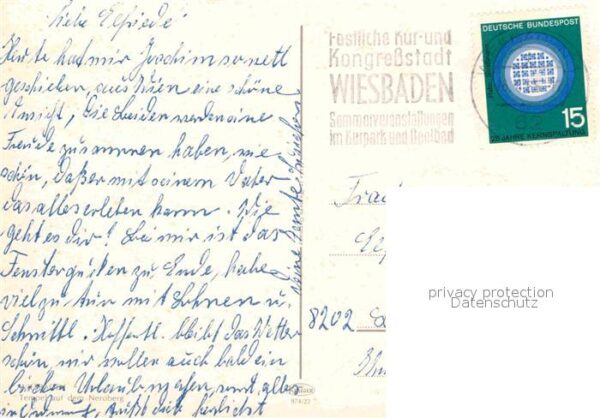 Liebe Elfriede!
Heute hat mir Joachim so nett
geschrieben, aus Wien eine schöne
Ansicht, die beiden werden eine
Freude zusammen haben, wie
schön, daß er mit seinem Vater
das alles erleben kann. Wie
geht es dir? Bei mir ist das
Fenstergucken zu Ende, habe
viel zu tun mit Bohnen u.
Schnittl. Hoffentl. bleibt das Wetter
schön, wir wollen auch bald ein
bischen Urlaub machen, und alles
in Ordnung, grüßt dich herzlichst
deine Tante
Tempel auf dem Neroberg
974/22
Festliche Kur- und
Kongreßstadt
WIESBADEN
Sommerveranstaltungen
im Kurpark und Opelbad
DEUTSCHE BUNDESPOST
15
25 JAHRE KERNSPALTUNG
8202
privacy protection
Datenschutz